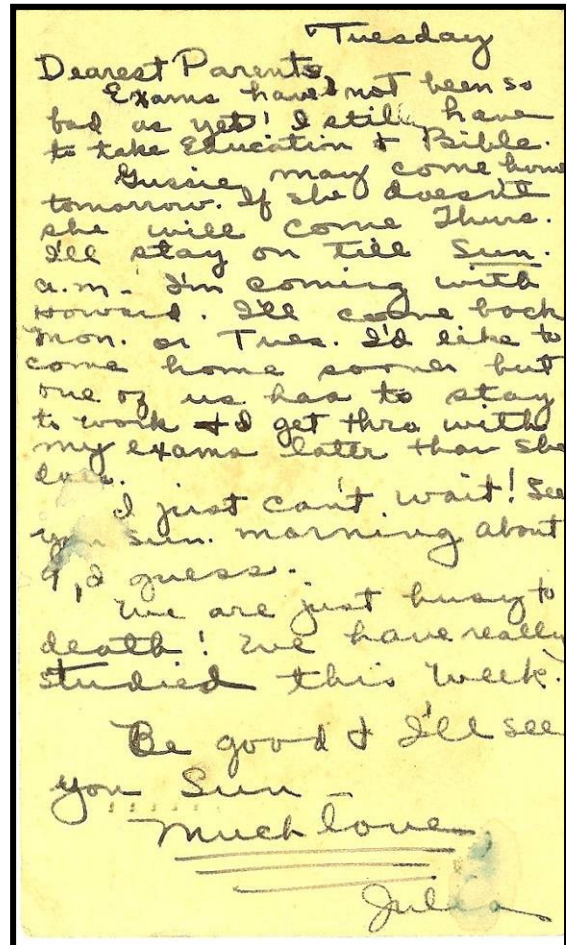 Tuesday
Dearest Parents,
Exams have not been so
bad as yet! I still have
to take Education & Bible.
Gussie may come home
tomorrow. If she doesn't
she will come Thurs.
I'll stay on till Sun.
a.m. - I'm coming with
Howard. I'll come back
Mon. or Tues. I'd like to
come home sooner but
one of us has to stay
to work & I get thro with
my exams later than she
does.
I just can't wait! See
you Sun. morning about
9, I guess.
We are just busy to
death! We have really
studied this week.
Be good & I'll see
you Sun -
Much love,
Julia